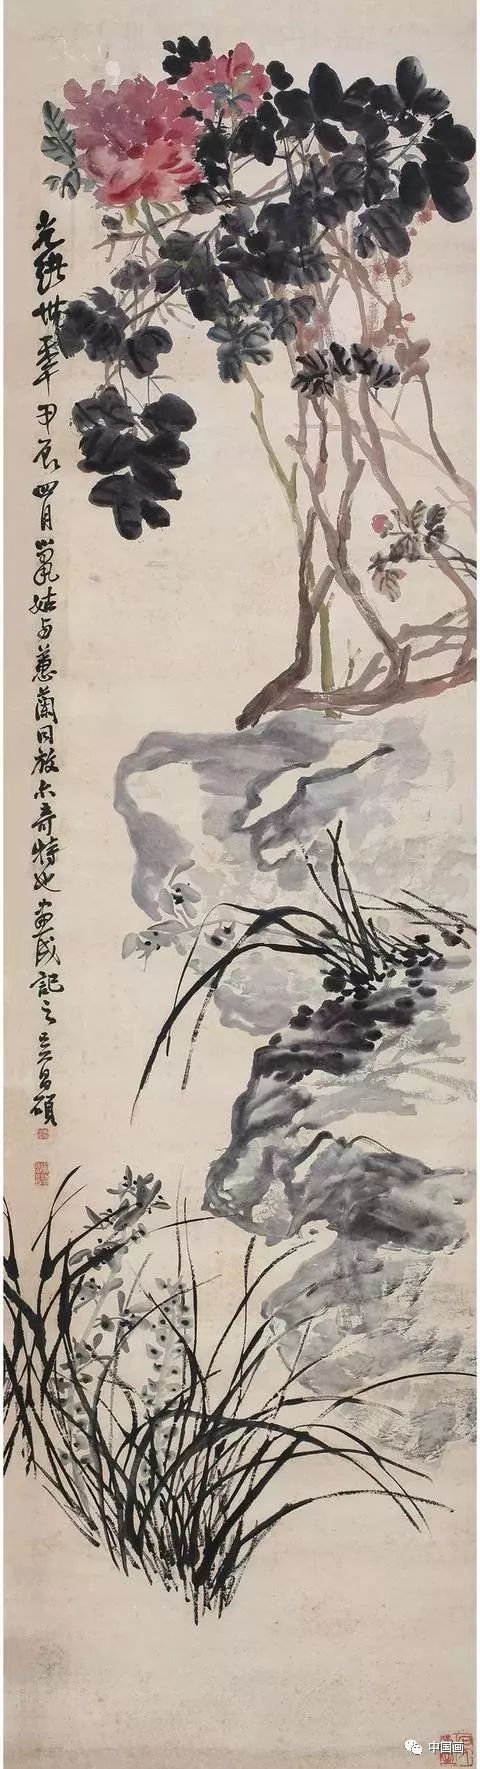 光緒卅年甲辰四月鼠姑与蕙蘭同放亦奇特也画成記之吴昌碩
中国画